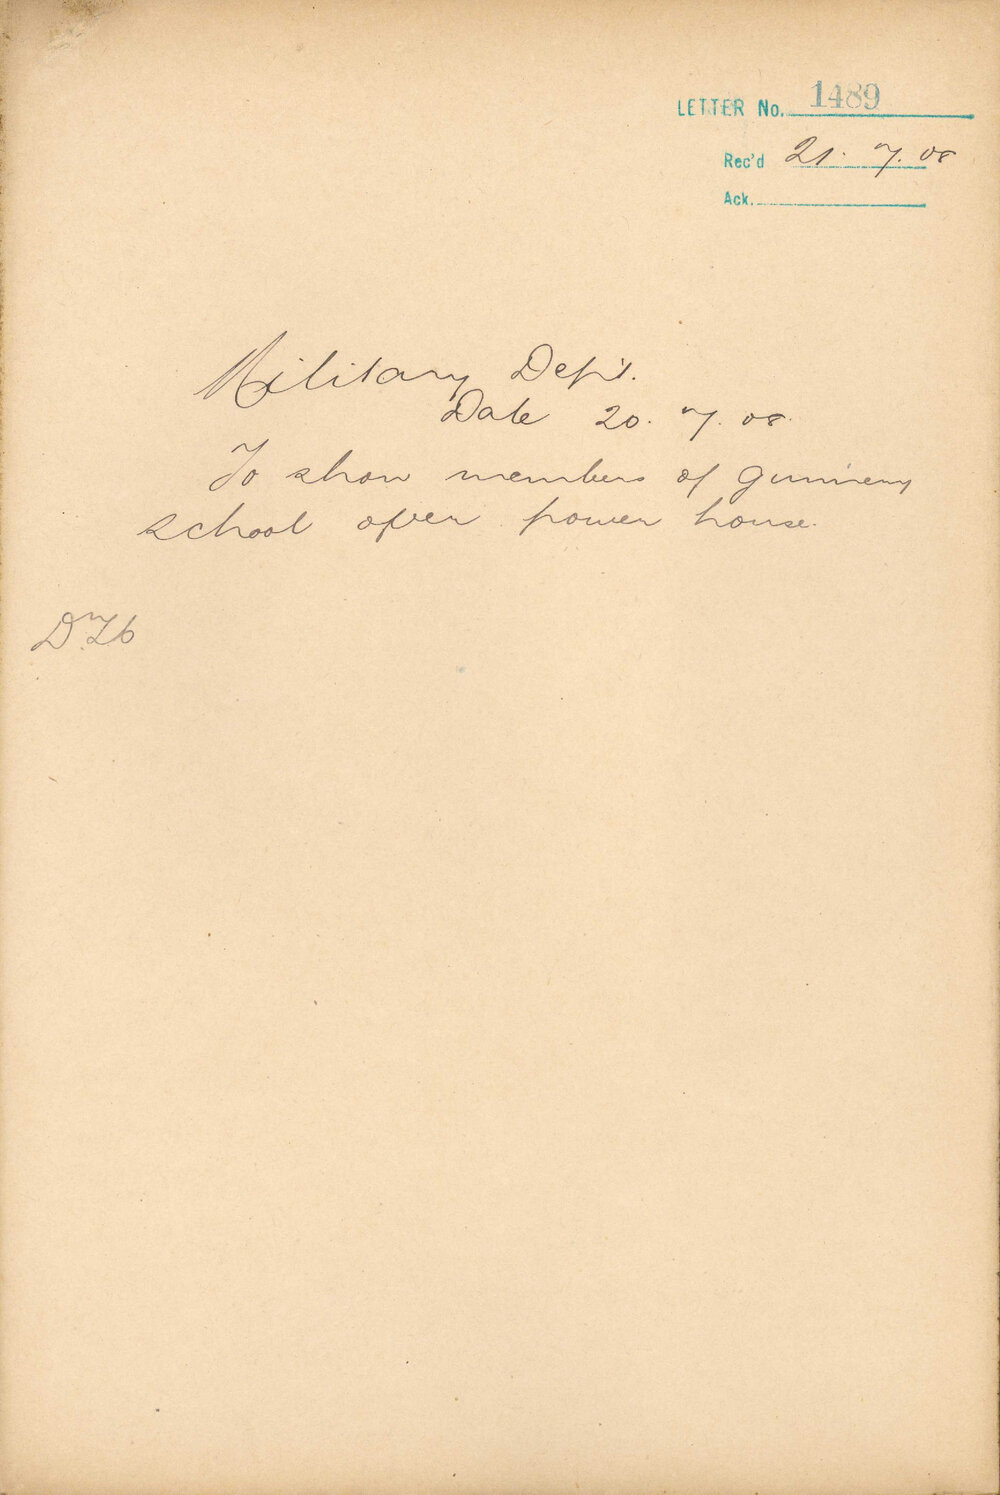 LETTER No. 1489
Rec'd 21. 7. 08
Ack.
Military Dep't.
Date 20. 7. 08.
To show members of gunnery
school over power house.